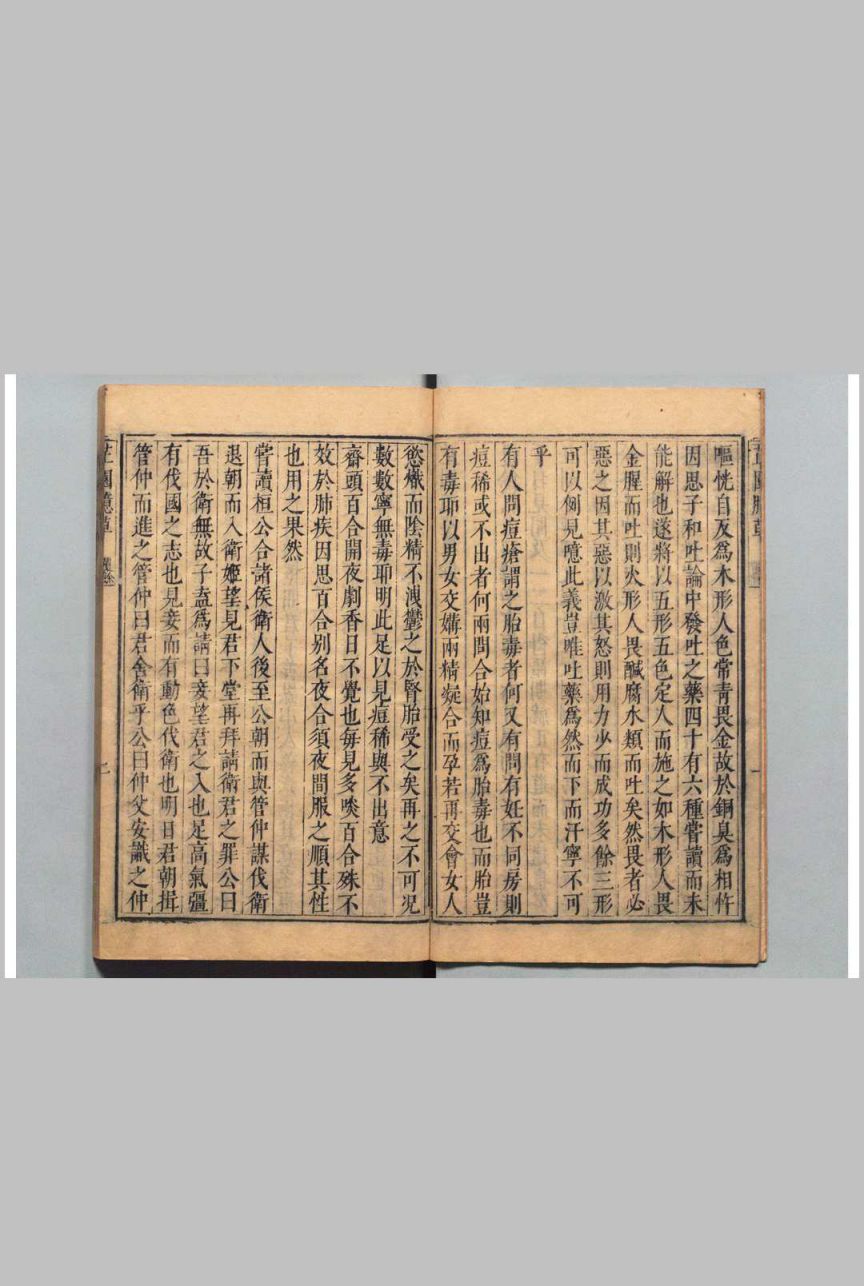 嘔恍自反爲木形人色常青畏金故於銅臭爲相忤
因思子和吐論中發吐之藥四十有六種嘗讀而未
能解也遂將以五形五色定人而施之如木形人畏
金腥而吐則火形人畏醎腐水類而吐矣然畏者必
惡之因其惡以激其怒則用力少而成功多餘三形
可以例見噫此義豈唯吐藥爲然而下而汗寧不可
乎
有人問痘瘡謂之胎毒者何又有問有妊不同房則
痘稀或不出者何兩問合始知痘爲胎毒也而胎豈
有毒耶以男女交媾兩精凝合而孕若再交會女人
慾熾而陰精不洩鬱之於腎胎受之矣再之不可况
數數寧無毒耶明此足以見痘稀與不出意
齋頭百合開夜劇香日不覺也每見多啖百合殊不
效於肺疾因思百合别名夜合須夜間服之順其性
也用之果然
嘗讀桓公合諸侯衛人後至公朝而與管仲謀伐衛
退朝而入衛姬望見君下堂再拜請衛君之罪公曰
吾於衛無故子盍爲請曰妾望君之入也足高氣彊
有伐國之志也見妾而有動色伐衛也明日君朝揖
管仲而進之管仲曰君舍衛乎公曰仲父安識之仲